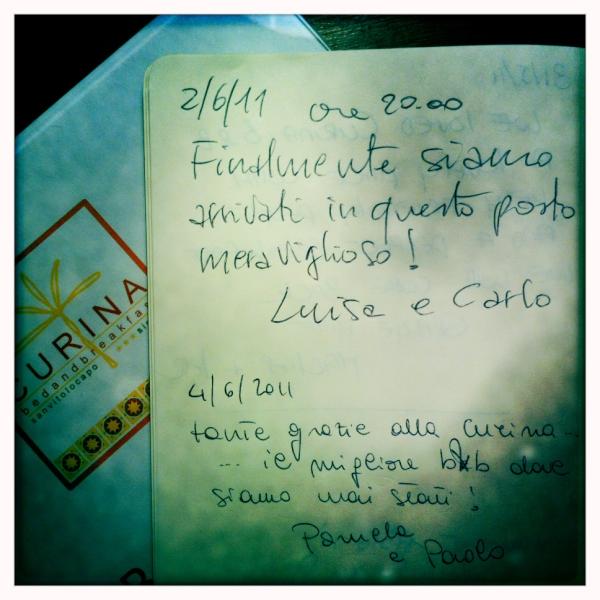 2/6/11 ore 20.00
Finalmente siamo
arrivati in questo posto
meraviglioso!
Luisa e Carlo
4/6/2011
tante grazie alla Curina...
... il migliore b&b dove
siamo mai stati!
Pamela
e Paolo
CURINA
bedandbreakfa
sanvitolocapo